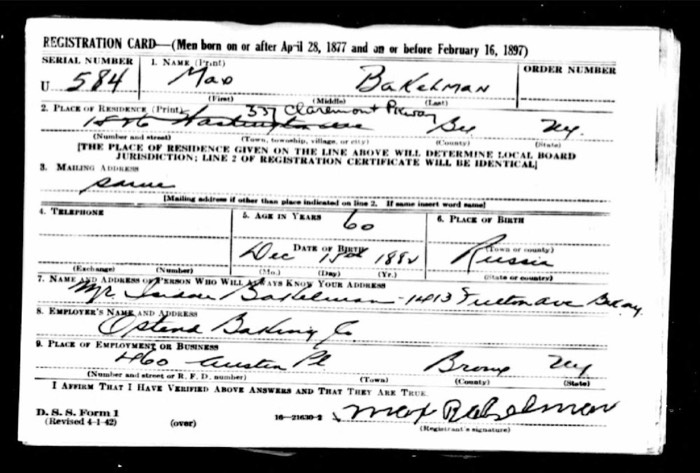 REGISTRATION CARD—(Men born on or after April 28, 1877 and on or before February 16, 1897)
SERIAL NUMBER 1. NAME (Print) ORDER NUMBER
U 584 Max Bakelman
(First) (Middle) (Last)
337 Claremont Pkway
2. PLACE OF RESIDENCE (Print)
Washington ave Bx NY
(Number and street) (Town, township, village, or city) (County) (State)
[THE PLACE OF RESIDENCE GIVEN ON THE LINE ABOVE WILL DETERMINE LOCAL BOARD
JURISDICTION; LINE 2 OF REGISTRATION CERTIFICATE WILL BE IDENTICAL]
3. MAILING ADDRESS
same
[Mailing address if other than place indicated on line 2. If same insert word same]
4. TELEPHONE 5. AGE IN YEARS 6. PLACE OF BIRTH
60
DATE OF BIRTH (Town or county)
Dec 15 1882 Russia
(Exchange) (Number) (Mo.) (Day) (Yr.) (State or country)
7. NAME AND ADDRESS OF PERSON WHO WILL ALWAYS KNOW YOUR ADDRESS
Mr Isidore Bakelman - 1413 Fulton ave
8. EMPLOYER'S NAME AND ADDRESS
Ostend Baking Co
9. PLACE OF EMPLOYMENT OR BUSINESS
460 Austin Pl Bronx NY
(Number and street or R. F. D. number) (Town) (County) (State)
I AFFIRM THAT I HAVE VERIFIED ABOVE ANSWERS AND THAT THEY ARE TRUE.
D. S. S. Form 1
(Revised 4-1-42) (over) 16—21630-2 Max Bakelman
(Registrant's signature)